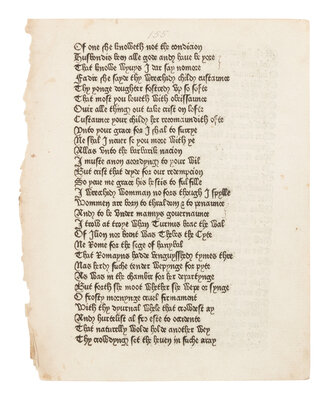 155
Of one she knoweth not the condicion
Husbondis ben alle gode and haue be yore
That knowe wyuys I dar say nomore
Fadir she sayde thy wrecchid childy custaunce
Thy yonge doughter fostred vp so softe
That most you loueth with obeissaunce
Ouir alle thing out take crist on lofte
Custaunce your childy her recomaundith ofte
Vnto your grace for I shal to surrye
Ne shal I neuer se you more with ye
Allas vnto the barbarik nacion
I muste anon acordyng to your wil
But crist that deyde for our redempcion
So yeue me grace his hestis to fulfille
I wrecchidy womman no fors though I spylle
Wommen are born to thraldom & to penaunce
And to be vnder mannys gouernaunce
I trow at troye whan Turnus brac the wal
Of Ilion nor brent was Thebes the Cyte
Ne Rome for the sege of hanybal
That Romayns hadde venquysshedy tymes thre
Nas herdy suche tender wepynge for pyte
As was in the chamber for her departynge
But forth she moot whether she wepe or synge
O frosty mornynge cruel firmament
With thy dyurnal wawe that crowdest ay
And hurtelist al fro este to occidente
That naturelly wolde holde another wey
Thy crowdynge set the heuen in suche aray